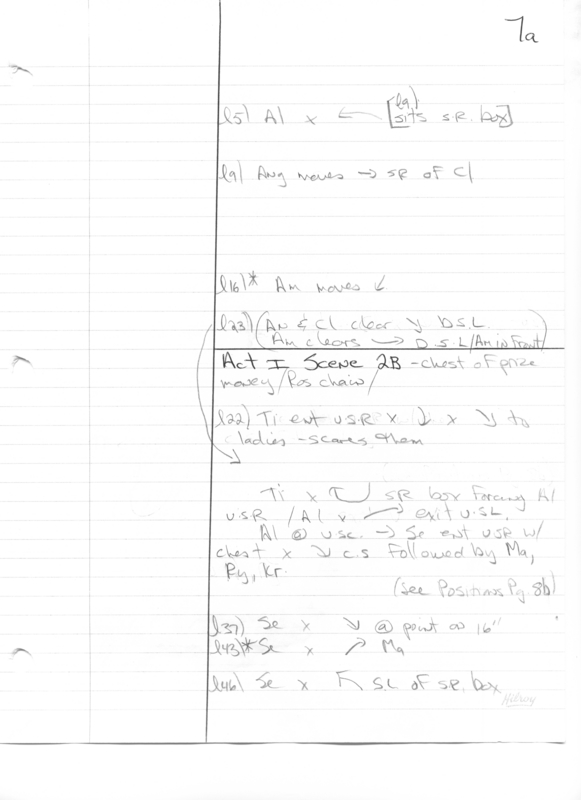 7a
l9)
l5) Al x ← [sits s.R. box]
l9) Ang moves → SR of Cl
l16)* Am moves ↙
l23) (An & Cl clear ↘ D.S.L.
Am clears → D.S.L/Am in Front)
Act I Scene 2B - chest of prize
money/Pos chair/
l22) Ti ent U.S.R x ↓ x ↘ to
ladies - scares them
Ti x SR box Forcing Al
U.S.R / Al x exit U.S.L.
Al @ usc. → Se ent USR w/
chest x ↘ c.s Followed by Ma,
Ry, Kr.
(See Positions Pg. 8b)
l37) Se x ↘ @ point on 16"
l43)* Se x ↗ Ma
l46) Se x ↖ S.L of S.R. box